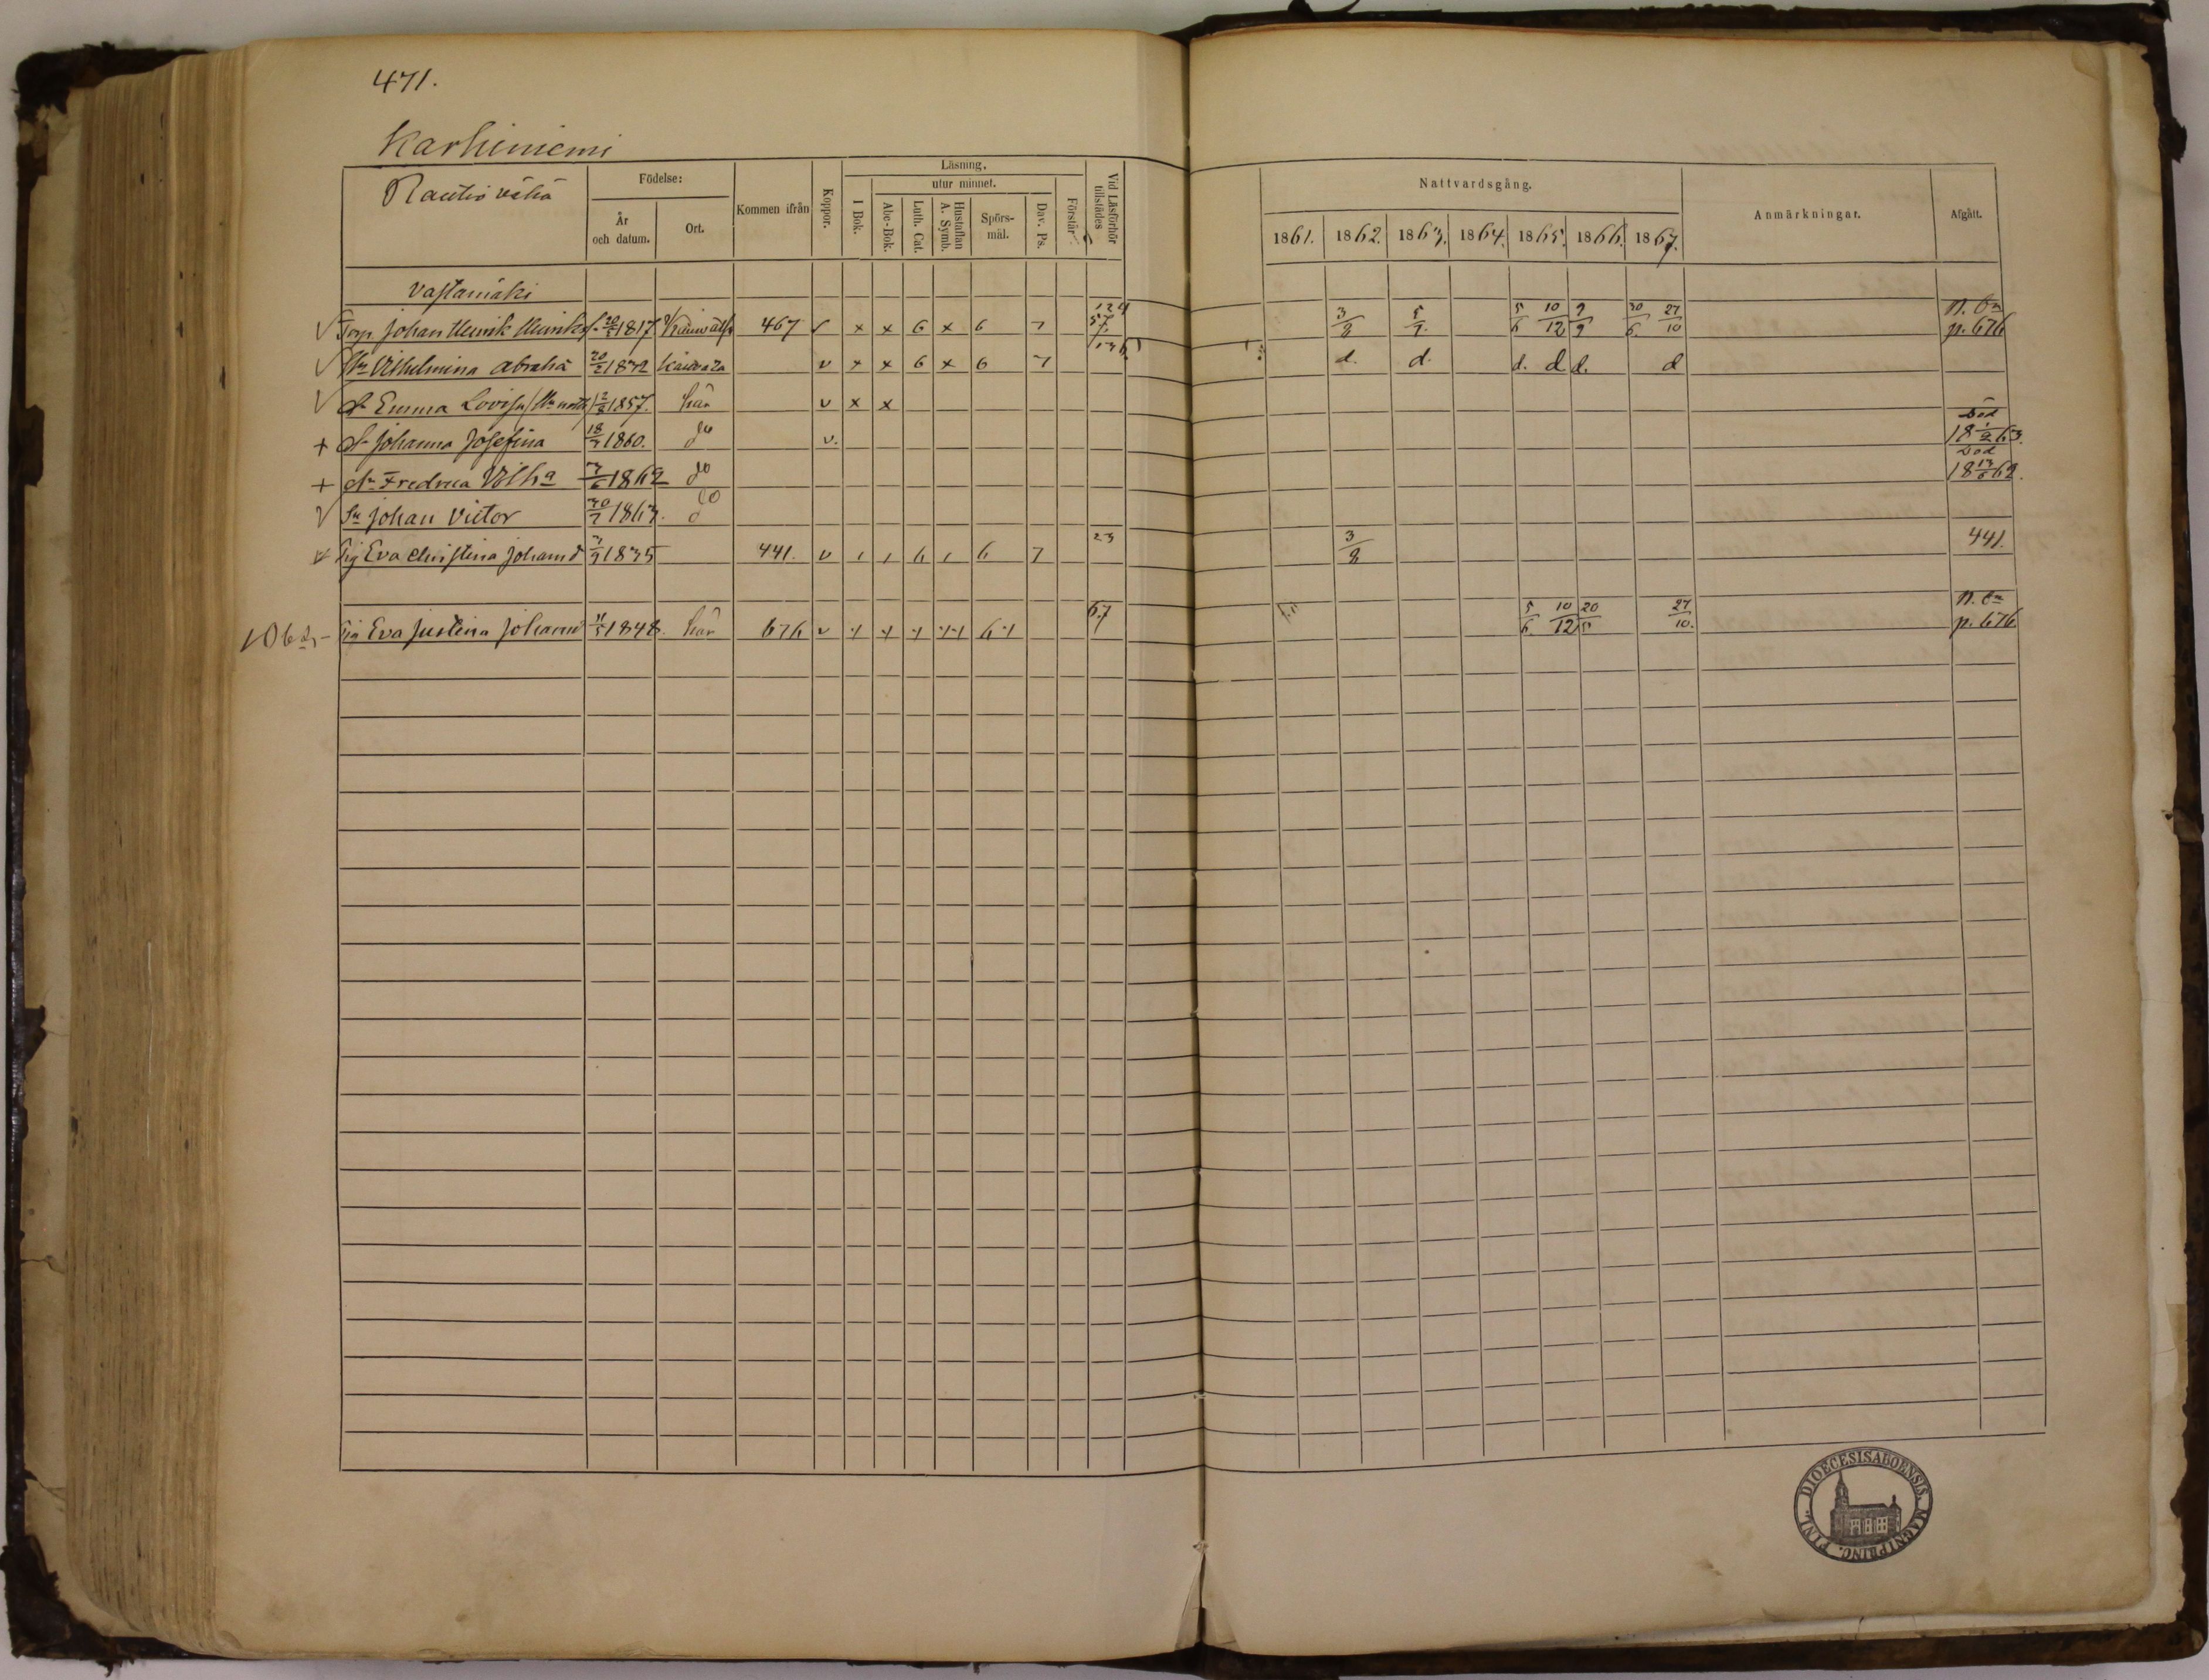 471.
Karhiniemi
Rautio vähä
Födelse:
År och datum.
Ort.
Kommen ifrån
Koppor.
Läsning.
utur minnet.
I Bok.
Abc-Bok.
Luth. Cat.
Hustaflan A. Symb.
Spörsmål.
Dav. Ps.
Förstår
Vid Läsförhör tillstädes
Nattvardsgång.
1861. 1862. 1863. 1864. 1865. 1866. 1867.
Anmärkningar.
Afgått.
Vastamäki
Torp. Johan Henrik 1817. 467 v x x 6 x 6 7 3/8 5/6 10/12 9/9 30/6 27/10 n. Bn p. 676
Vilhelmina Abraha 1832 v x x 6 x 6 7 d. d. d. d d. d
dr Emma Lovisa 1857. här v x x
+ dr Johanna Josefina 18 1860. do v. död 18 63.
+ dr Fredrica Vilha 1862 do död 18 62.
Sn Johan Victor 1863. do
Eva Christina Johansd 1835 441. v 6 6 7 23 3/8 441.
Eva Justina Johansd 1848. här 676 v 67 5/6 10/12 20 27/10. n. Bn p. 676
DIOECESIS ABOENSIS. MAGNI PRINC. FINL.